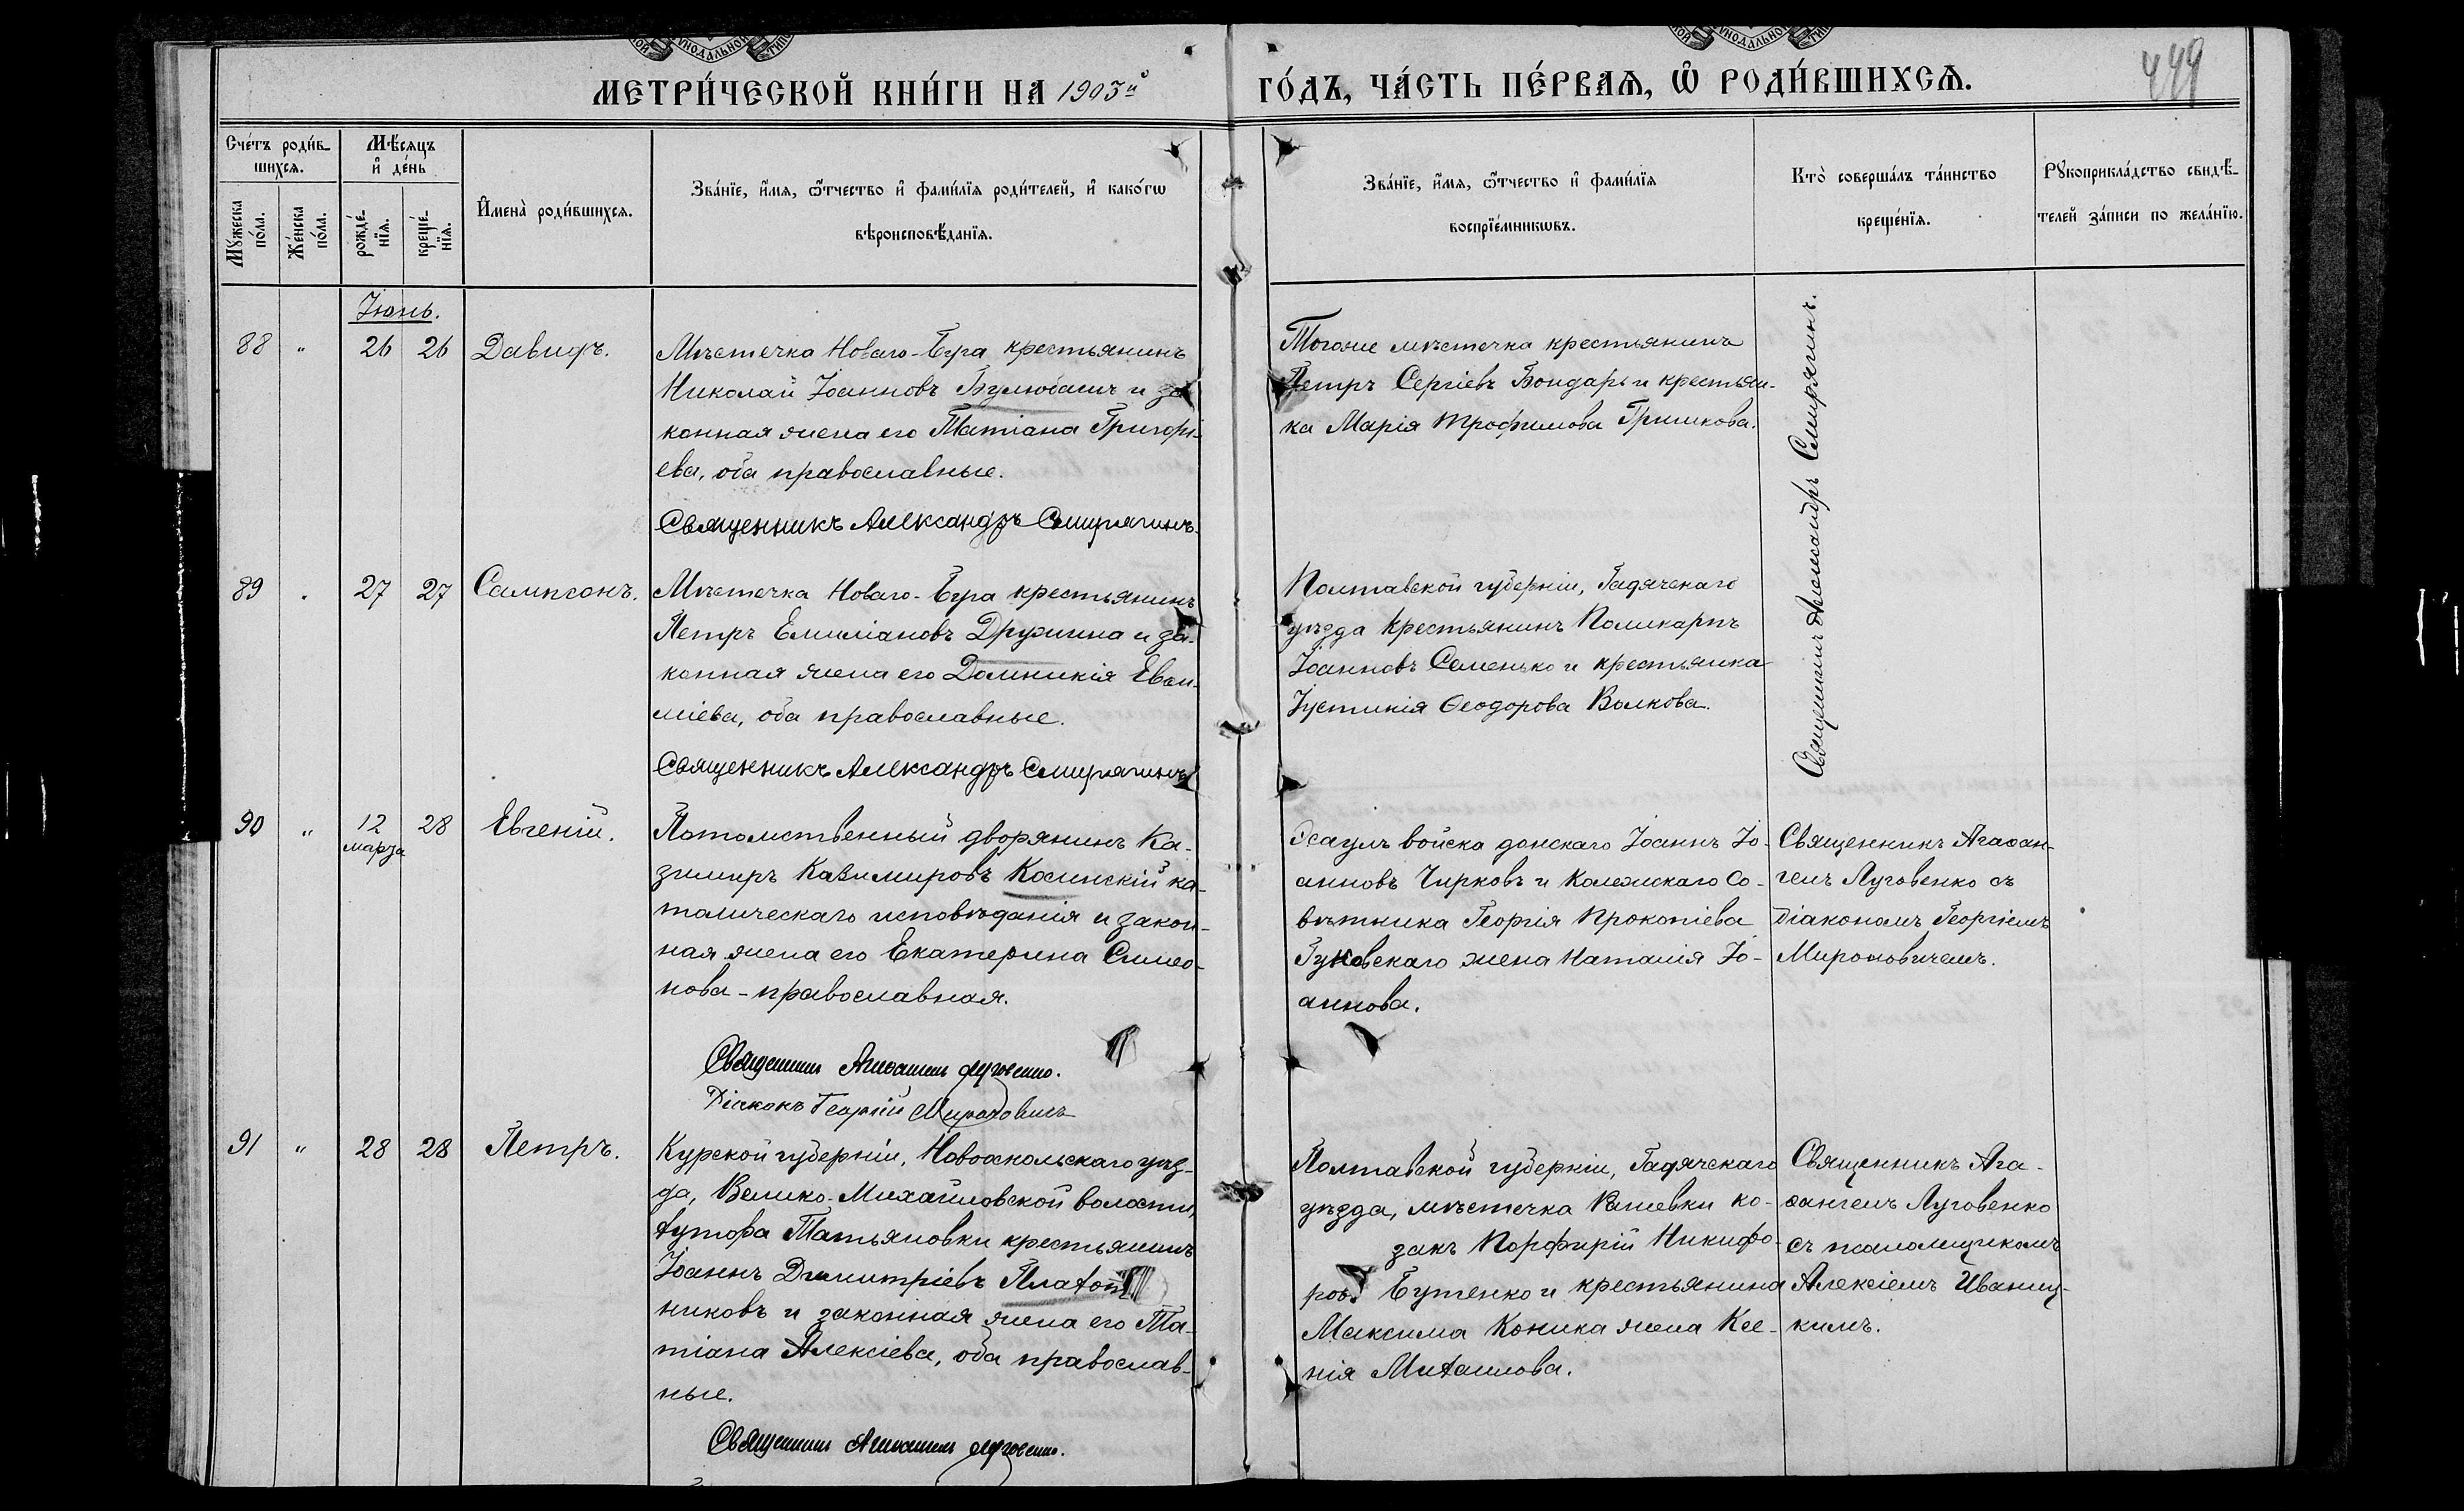 МЕТРИ́ЧЕСКОЙ КНИ́ГИ НА 1903й
ГО́ДЪ, ЧА́СТЬ ПЕ́РВАѦ, Ѡ҆ РОДИ́ВШИХСѦ.
449
Сче́тъ роди́в-
шихсѧ.
Мѣ́сѧцъ
и҆ де́нь
Мꙋ́жеска
по́ла.
Же́нска
по́ла.
рожде́-
нїѧ.
креще́-
нїѧ.
И҆мена̀ роди́вшихсѧ.
Зва́нїе, и҆́мѧ, ѻ҆́тчество и҆ фами́лїѧ роди́телей, и҆ како́гѡ
вѣроисповѣ́данїѧ.
Зва́нїе, и҆́мѧ, ѻ҆́тчество и҆ фами́лїѧ
воспрїе́мникѡвъ.
Кто̀ соверша́лъ та́инство
креще́нїѧ.
Рꙋкоприкла́дство свидѣ́-
телей за́писи по жела́нїю.
Іюнь.
88 " 26 26 Давидъ.
Мѣстечка Новаго-Буга крестьянинъ
Николай Іоанновъ Булюбашъ и за-
конная жена его Татіана Григорі-
ева, оба православные.
Священникъ Александръ Смирягинъ.
Тогоже мѣстечка крестьянинъ
Петръ Сергіевъ Бондарь и крестьян-
ка Марія Трофимова Гришкова.
Священникъ Александръ Смирягинъ.
89 " 27 27 Сампсонъ.
Мѣстечка Новаго-Буга крестьянинъ
Петръ Емиліановъ Дружина и за-
конная жена его Домникія Евѳи-
міева, оба православные.
Священникъ Александръ Смирягинъ
Полтавской губерніи, Гадячскаго
уѣзда крестьянинъ Поликарпъ
Іоанновъ Семенько и крестьянка
Іустинія Ѳеодорова Волкова.
90 " 12 28 Евгеній.
марта
Потомственный дворянинъ Ка-
зимиръ Казимировъ Косинскій ка-
толическаго исповѣданія и закон-
ная жена его Екатерина Симео-
нова - православная.
Священникъ Агаѳангелъ Луговенко.
Діаконъ Георгій Мироновичъ
Эсаулъ войска донскаго Іоаннъ Іо-
анновъ Чирковъ и Колежскаго Со-
вѣтника Георгія Прокопіева
Гуковскаго жена Наталія Іо-
аннова.
Священникъ Агаѳан-
гелъ Луговенко съ
Діакономъ Георгіемъ
Мироновичемъ.
91 " 28 28 Петръ.
Курской губерніи, Новооскольскаго уѣз-
да, Велико-Михайловской волости,
хутора Татьяновки крестьянинъ
Іоаннъ Димитріевъ Плахот
никовъ и законная жена его Та-
тіана Алексіева, оба православ-
ные.
Священникъ Агаѳангелъ Луговенко.
Полтавской губерніи, Гадячскаго
уѣзда, мѣстечка Рашевки ко-
закъ Порфирій Никифо-
ровъ Бутенко и крестьянина
Максима Коника жена Ксе-
нія Михаилова.
Священникъ Ага-
ѳангелъ Луговенко
съ псаломщикомъ
Алексіемъ Иваниц-
кимъ.